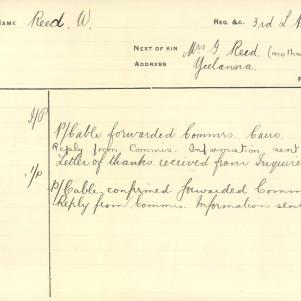 NAME Reed, W. REG. &c. 3rd L.H
NEXT OF KIN Mrs G. Reed (mother
ADDRESS Yeelanna.
P/Cable forwarded Commrs. Cairo.
Reply from Commis. Information sent
Letter of thanks received from Inquire
P/Cable confirmed forwarded Comm
Reply from Commis. Information sent